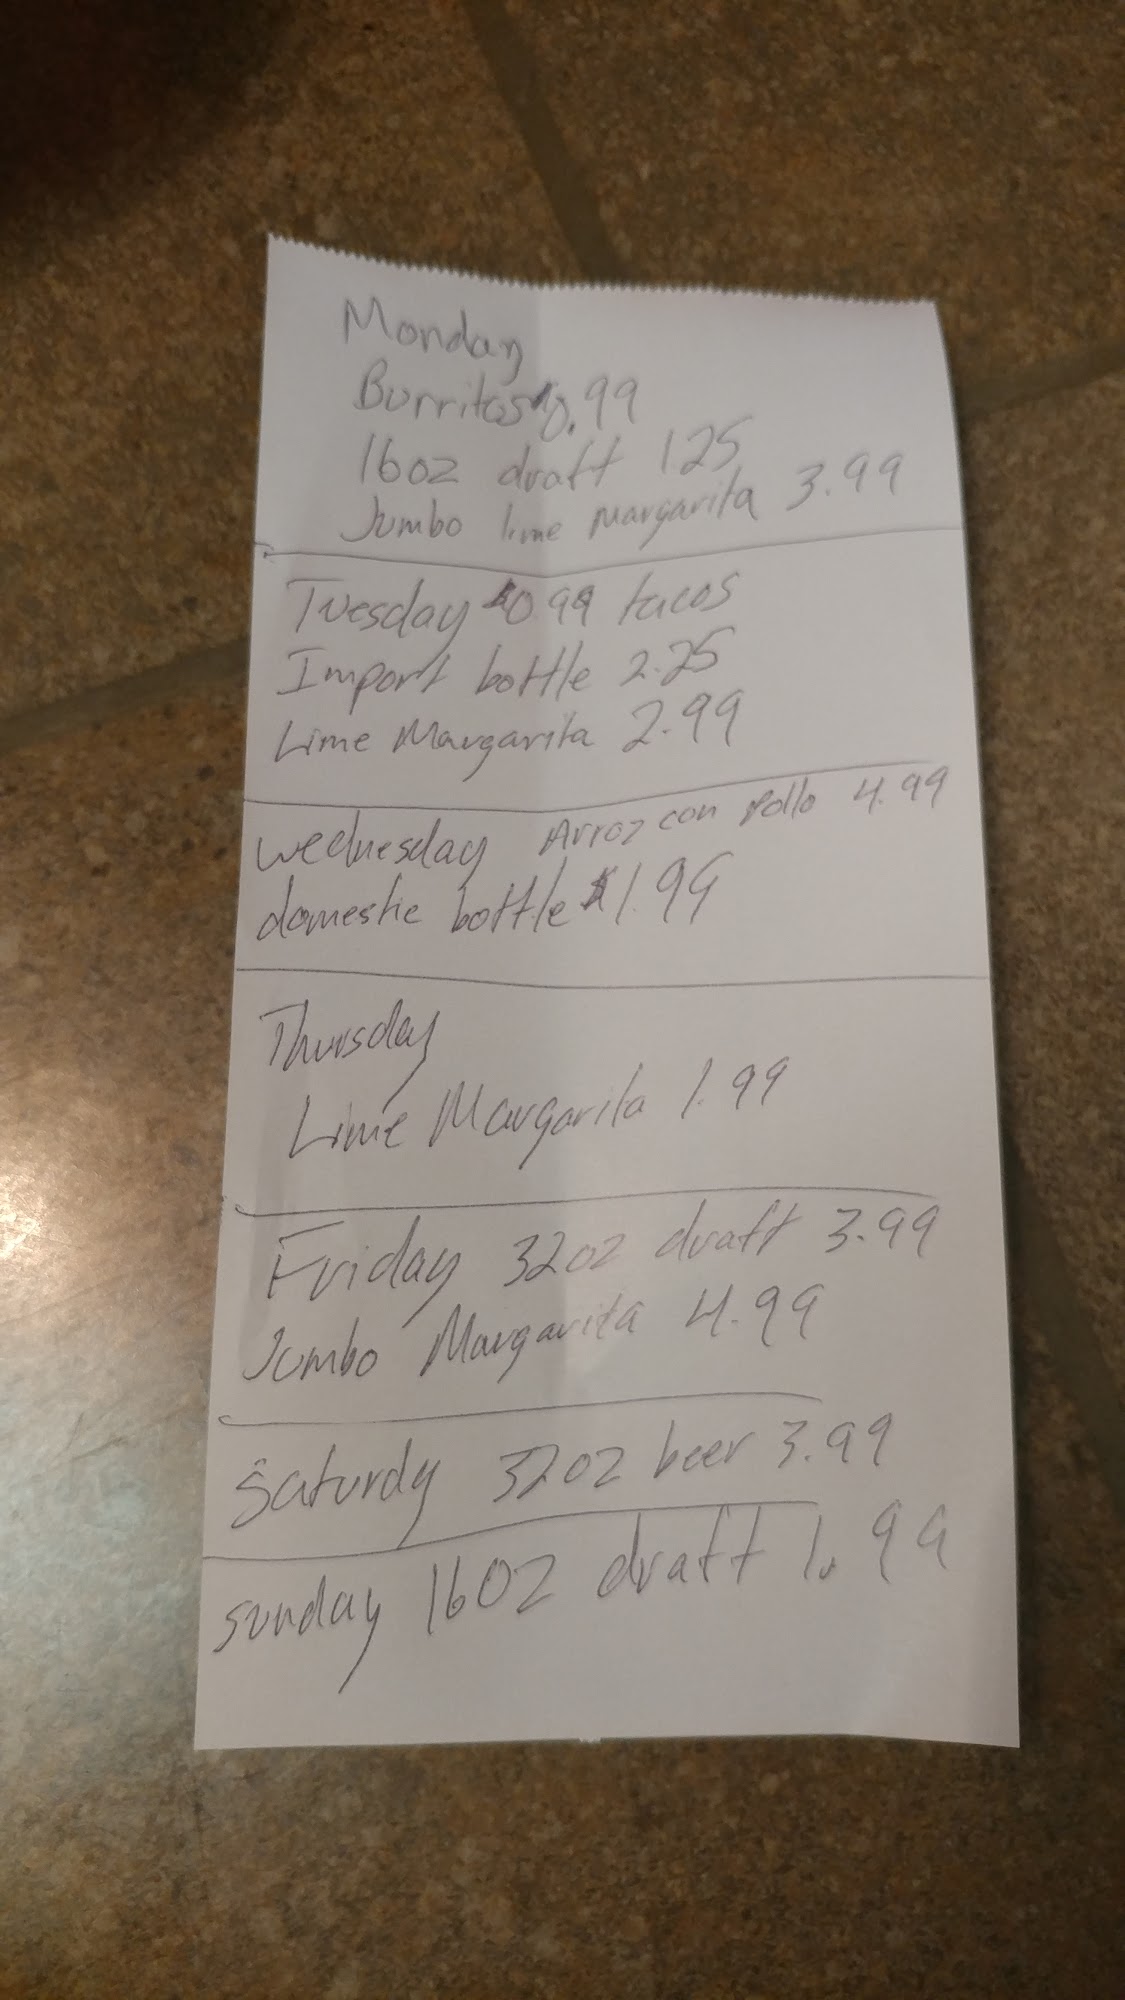 Monday
Burritos $0.99
16oz draft 1.25
Jumbo lime Margarita 3.99
Tuesday $0.99 tacos
Import bottle 2.25
Lime Margarita 2.99
wednesday Arroz con pollo 4.99
domestic bottle $1.99
Thursday
Lime Margarita 1.99
Friday 32oz draft 3.99
Jumbo Margarita 4.99
Saturdy 32oz beer 3.99
sunday 16oz draft 1.99